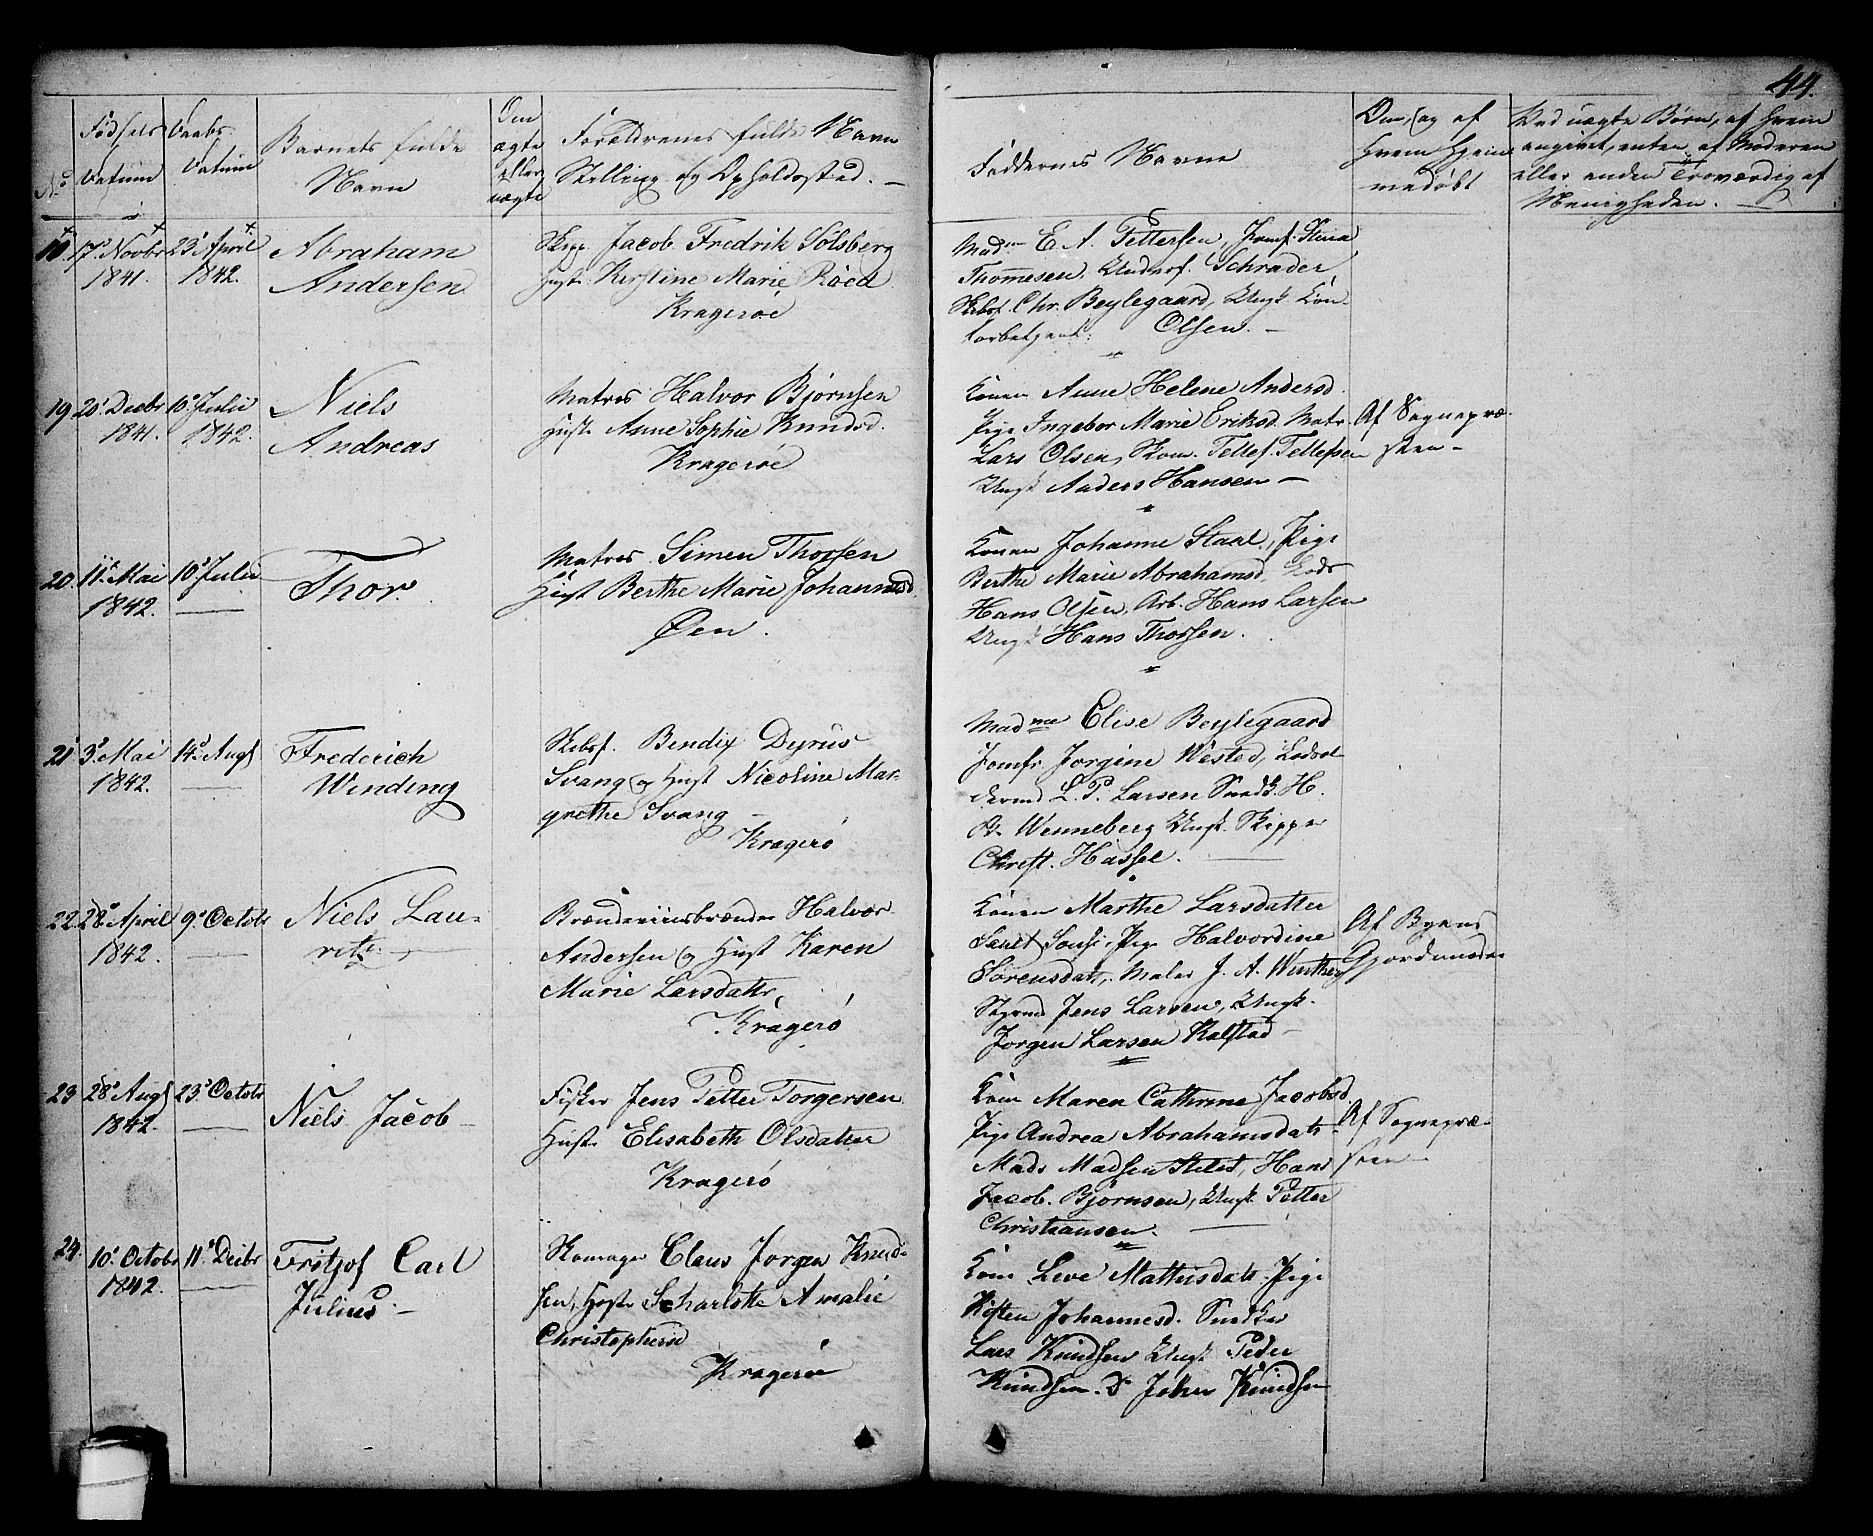 44.
No
Fødsels
Datum
Daabs
Datum
Barnets fulde
Navn
Om
ægte
eller
uægte
Forældrenes fulde Navn
Stilling og Opholdssted. —
Faddernes Navne
Om, og af
Hvem Hjem
medøbt
Ved uægte Børn, af hvem
angivet, enten af Moderen
eller anden Troværdig af
Menigheden. —
18 17d Novbr 23d April Abraham
1841. 1842. Andersen
Skip. Jacob Fredrik Sølsberg
Hust. Kirstine Marie Röed
Kragerøe
Madm E. A. Pettersen, Jomf. Stina
Thommesen, Underf. Schrader,
Skibsf. Chr. Beylegaard, Ungk. Con-
torbetjent. Olsen. —
19 20d Decbr 10d Julii Niels
1841. 1842. Andreas
Matros Halvor Bjørnsen
Hust. Anne Sophie Knudsd.
Kragerøe
Konen Anne Helene Andersd.
Pige Ingebor Marie Eriksd. Matr.
Lars Olsen, Skom. Tellef Tellefsen
Ungk Anders Hansen —
Af Sognepræ-
sten —
20. 11d Mai 10d Julii Thor.
1842.
Matros Simen Thorsen
Hust Berthe Marie Johannesd
Øen.
Konen Johanne Staal, Pige
Berthe Marie Abrahamsd, Lods
Hans Olsen, Arb. Hans Larsen
Ungk Hans Thorsen.
21 3d Mai 14d Aug Frederich
1842. Winding
Skibsf. Bendix Dyrus
Svang og Hust Nicoline Mar-
grethe Svang —
Kragerø
Madme Elise Beylegaard
Jomfr. Jorgine Wested, Lodsol
dermd L. P. Larsen Snedk. H.
Wenneberg Ungk. Skipper
Christ. Hassel.
22. 28d April 9d Octobr Niels Lau-
1842. ritz —
Brændeviinsbrænder Halvor
Andersen og Hust Karen
Marie Larsdattr,
Kragerø
Konen Marthe Larsdatter
Pige Halvordine
Sörensdatt, Maler J. A. Winther
Styrmd Jens Larsen, Ungk.
Jorgen Larsen Kalstad —
Af Byens
Gjordmoder
23 28d Aug 23d Octobr Niels Jacob —
1842.
Fisker Jens Petter Torgersen
Hustr Elisabeth Olsdatter
Kragerø
Kone Maren Cathrine Jacobsd.
Pige Andrea Abrahamsdatt
Mads Madsen Hans
Jacob Bjornsen, Ungk. Petter
Christiansen.
Af Sognepræ-
sten —
24. 10d Octobr 11d Decbr Fritjof Carl
1842. Julius. —
Skomager Claus Jorgen Knud-
sen, Hustr Scharlotte Amalie
Christophersd
Kragerøe
Kone Leve Mathisdatt. Pige
Kisten Johannesd. Snedker
Lars Knudsen Ungk Peder
Knudsen. D Johan Knudsen